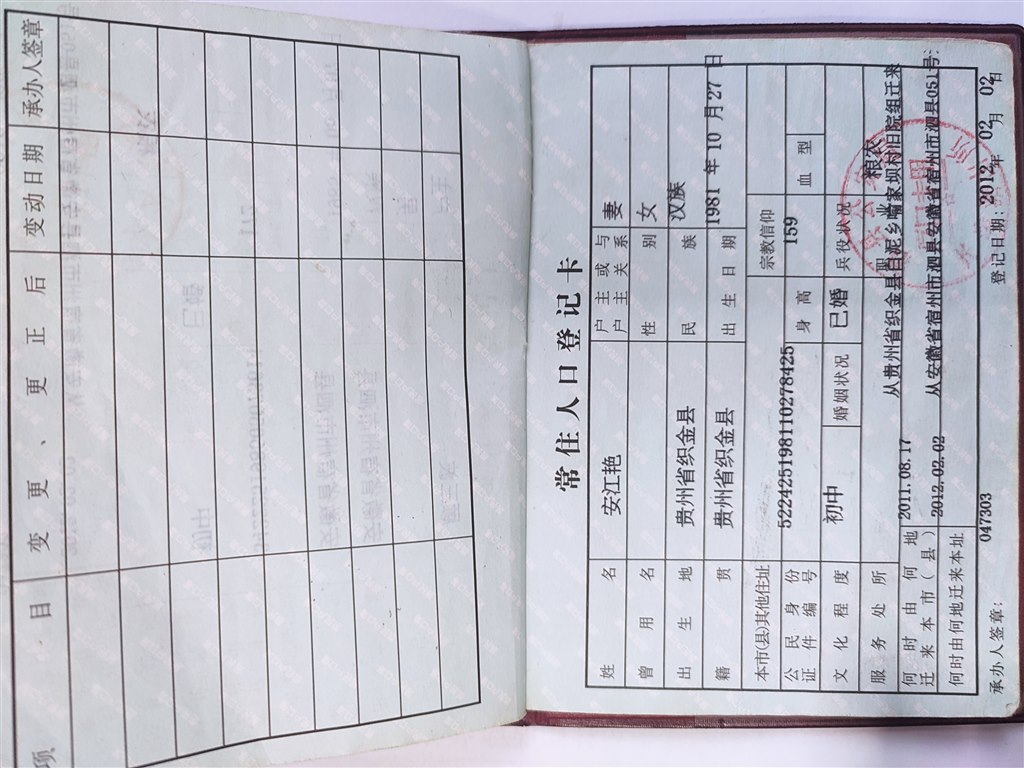 项 目 变更、更正后 变动日期 承办人签章
常住人口登记卡
姓名 安江艳 户主或与户主关系 妻
曾用名 性别 女
出生地 贵州省织金县 民族 汉族
籍贯 贵州省织金县 出生日期 1981 年 10 月 27 日
本市(县)其他住址 宗教信仰
公民身份证件编号 522425198110278425 身高 159 血型
文化程度 初中 婚姻状况 已婚 兵役状况
服务处所 职业 粮农
何时由何地迁来本市(县) 2011.08.17 从贵州省织金县白泥乡喻家坝村旧院组迁来
何时由何地迁来本址 2012.02.02 从安徽省宿州市泗县安徽省宿州市泗县051号:
承办人签章: 047303 登记日期: 2012 年 02 月 02 日